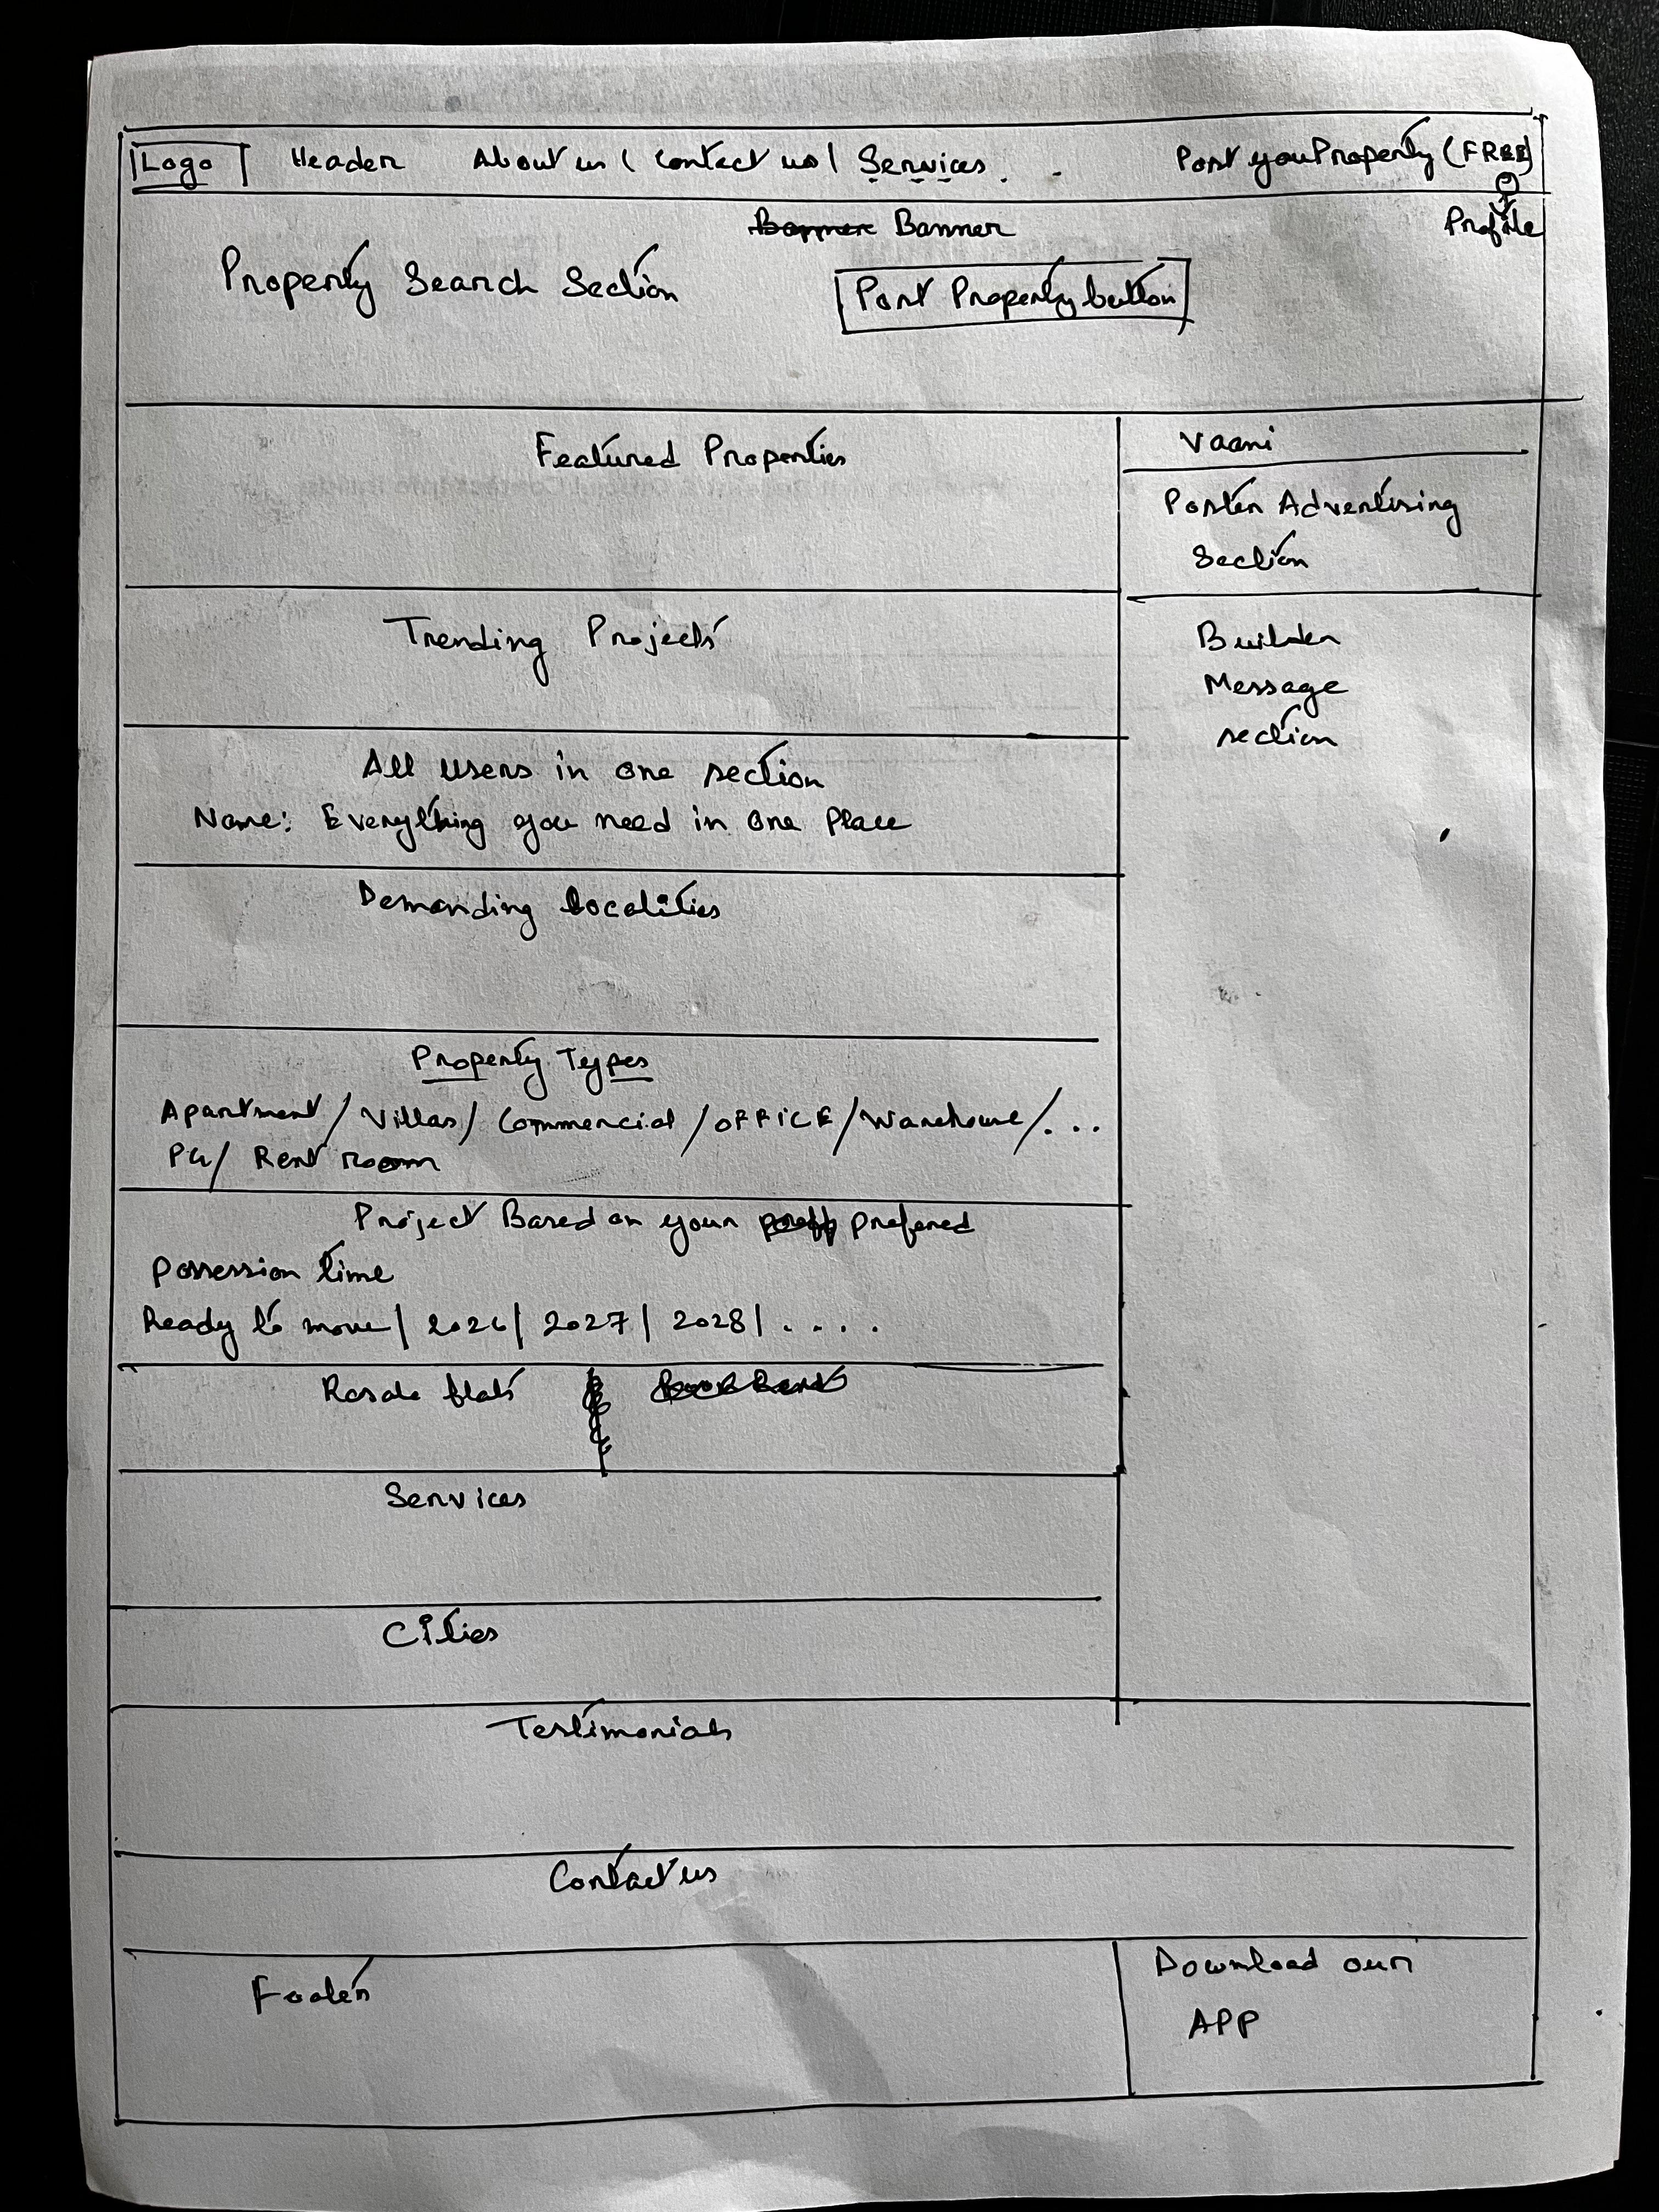 Logo Header About us | Contact us | Services . -  Post you Property (FREE)
Profile
Banner
Property Search Section Post Property button
Featured Properties
Trending Projects
All users in one section
Name: Everything you need in one Place
Demanding localities
Property Types
Apartment / Villas / Commercial / OFFICE / Warehouse / . . .
PG / Rent room
Project Based on your prefered
possession time
Ready to move | 2026 | 2027 | 2028 | . . . .
Resale flats
Services
Cities
Vaani
Poster Advertising
Section
Builder
Message
section
Testimonials
Contact us
Footer
Download our
APP